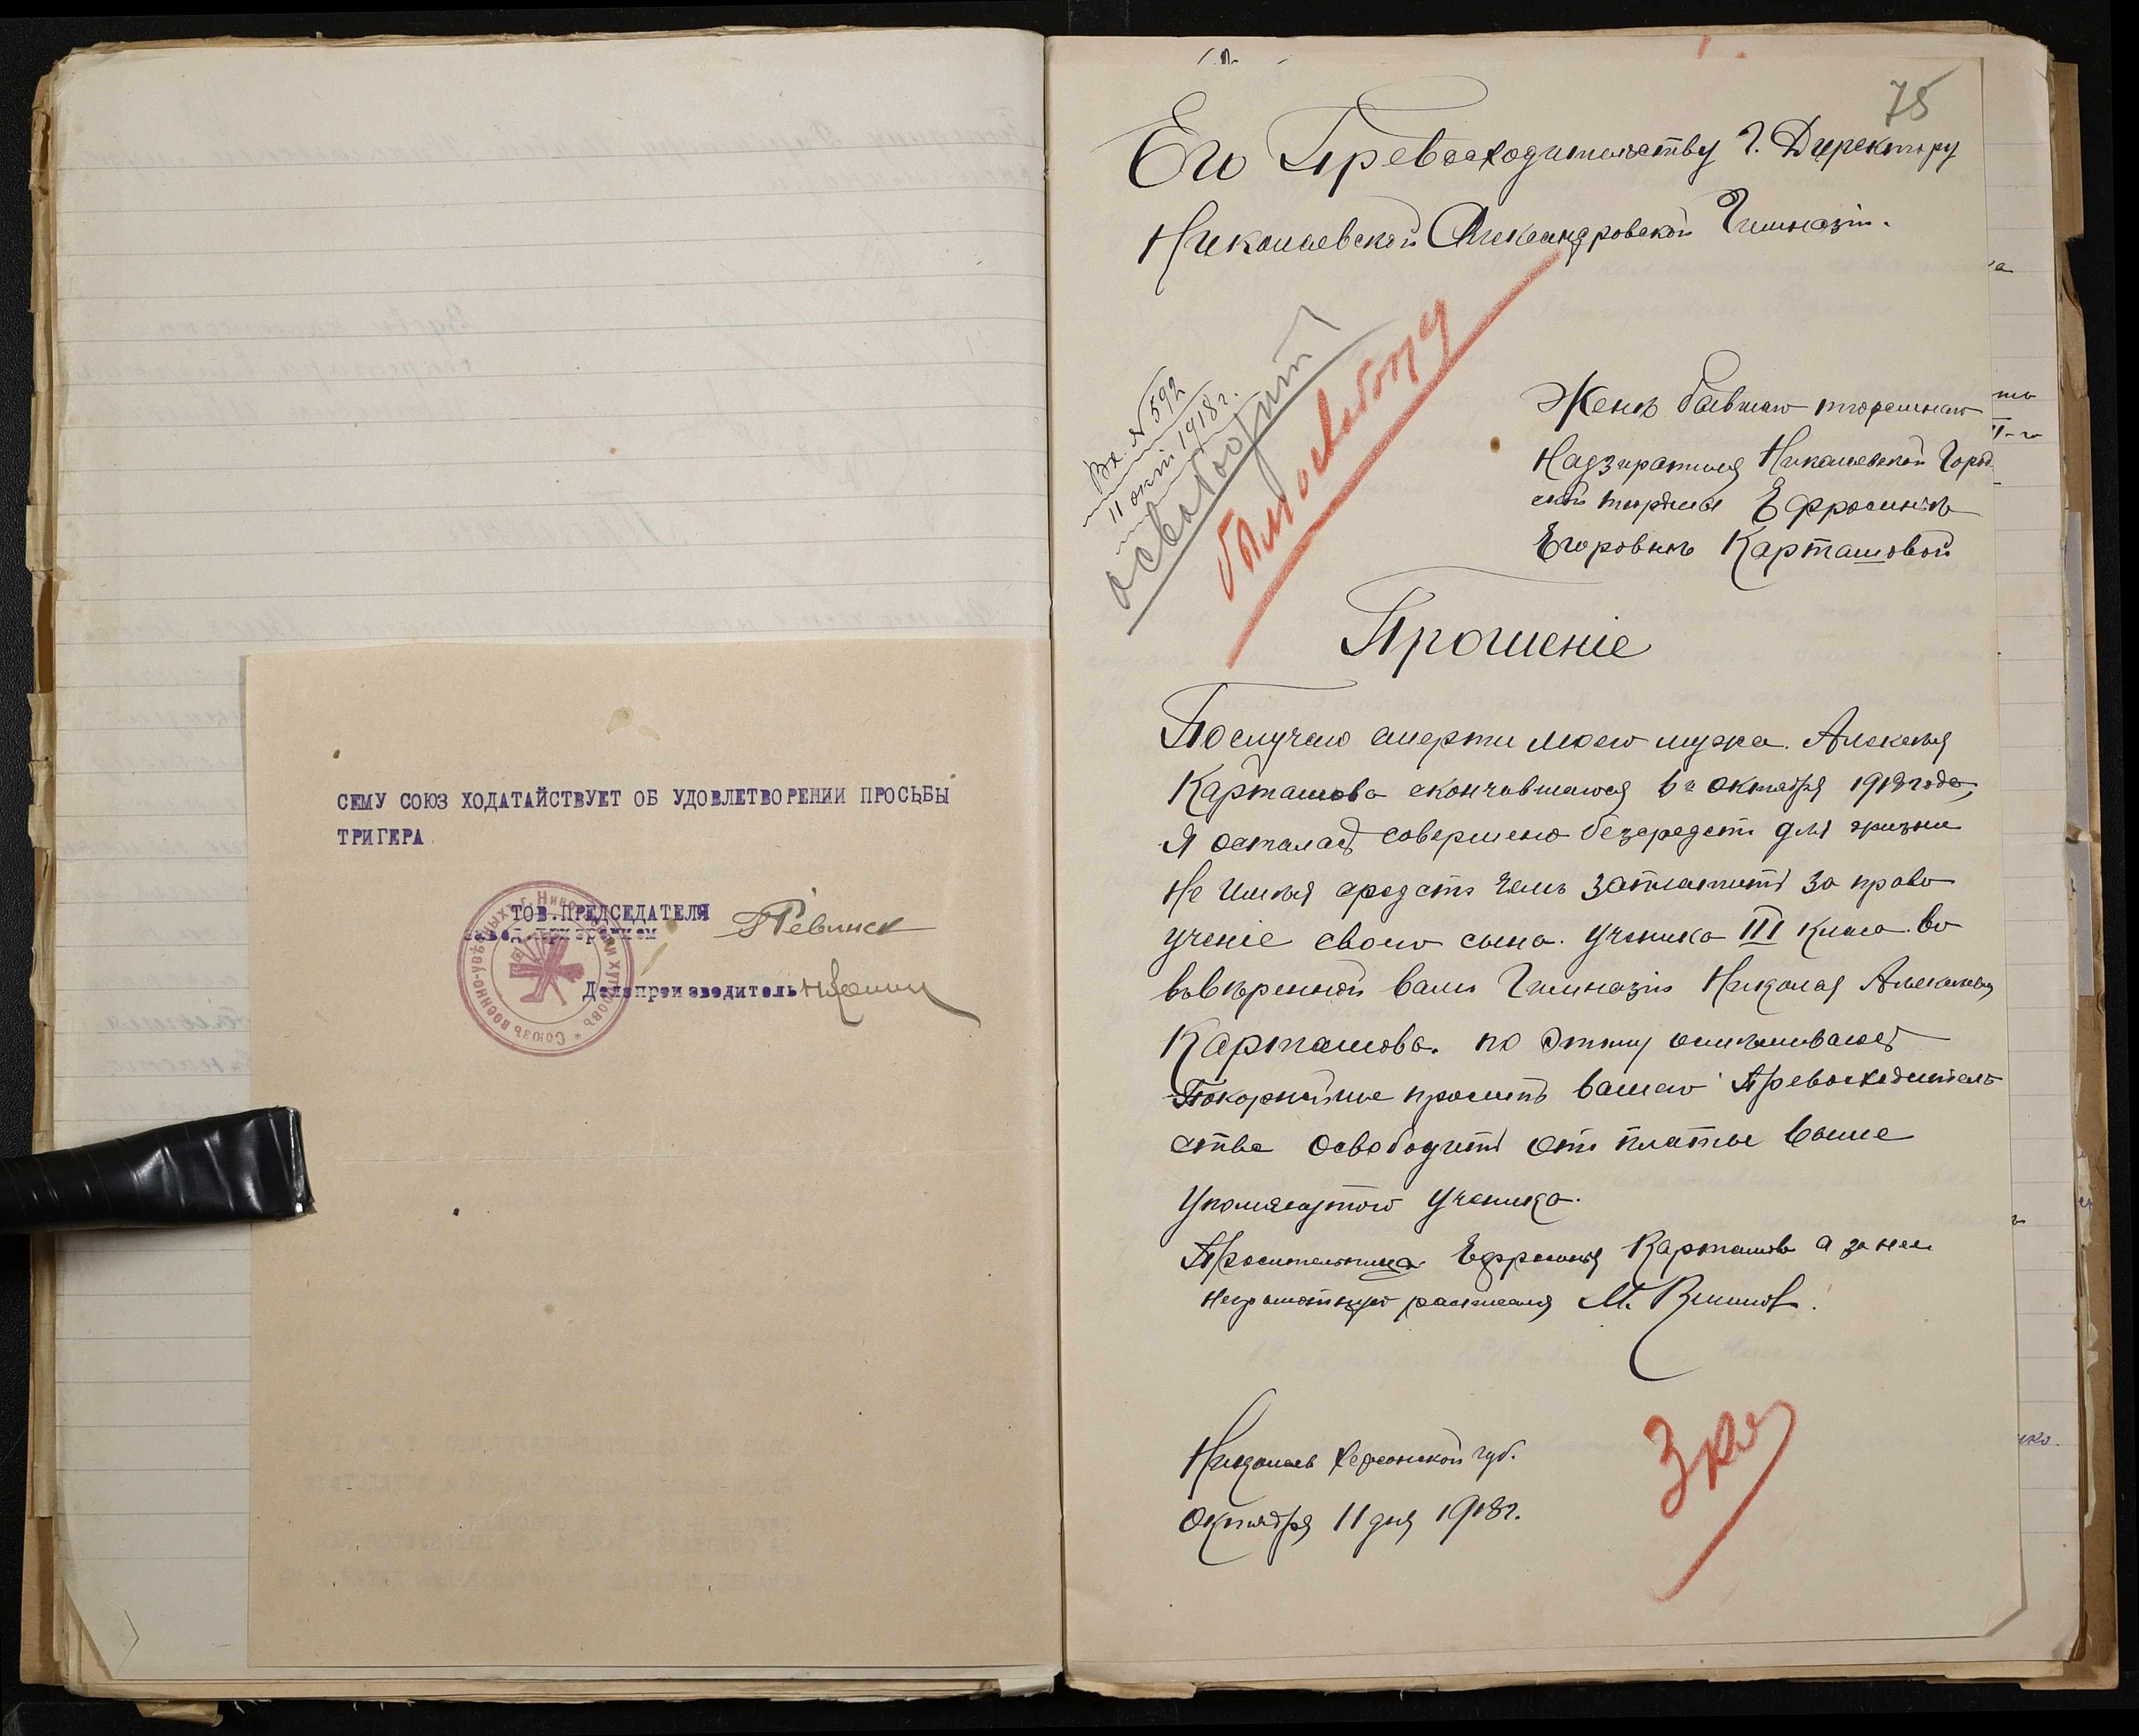 СЕМУ СОЮЗ ХОДАТАЙСТВУЕТ ОБ УДОВЛЕТВОРЕНИИ ПРОСЬБЫ
ТРИГЕРА
ТОВ.ПРЕДСЕДАТЕЛЯ
Делопроизводитель
75
Его Превосходительству Г. Директору
Николаевской Александровской Гимназіи.
Вх. № 592
11 окт 1918 г.
освободит
Женѣ бывшаго тюремнаго
Надзирателя Николаевской Город
ской тюрмы Ефросиніѣ
Егоровнѣ Карташовой
Прошеніе
Послучаю смерти моего мужа. Алексѣя
Карташова скончавшагося 6го октября 1918 года,
Я осталась совершено безсредств для жизни
Не имѣя средств чемъ заплатить за право
ученіе своего сына. Ученика III класа. во
ввѣренной вами Гимназіи Николая Алексѣева
Карташова. по этому осмѣливаюсь
Покорнѣйше просить вашего Превосходитель
ства освободить отъ платы выше
Упомянутого Ученика.
Просительница Ефросинія Карташова а за нее
неграмотную расписался М.
Николаев Херсонской губ.
Октября 11 дня 1918 г.
3 кл